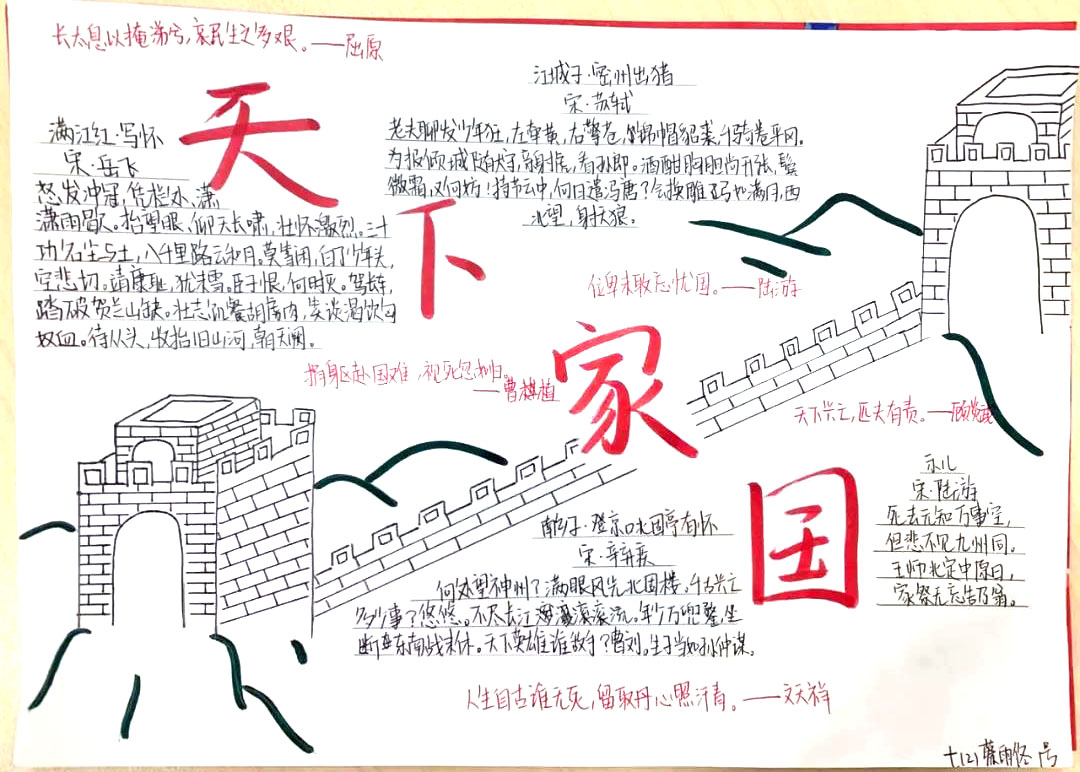 长太息以掩涕兮，哀民生之多艰。——屈原
满江红·写怀
宋·岳飞
怒发冲冠，凭栏处、潇
潇雨歇。抬望眼、仰天长啸，壮怀激烈。三十
功名尘与土，八千里路云和月。莫等闲，白了少年头，
空悲切。靖康耻，犹未雪。臣子恨，何时灭。驾长车，
踏破贺兰山缺。壮志饥餐胡虏肉，笑谈渴饮匈
奴血。待从头，收拾旧山河，朝天阙。
江城子·密州出猪
宋·苏轼
老夫聊发少年狂，左牵黄，右擎苍，锦帽貂裘，千骑卷平冈。
为报倾城随太守，亲射虎，看孙郎。酒酣胸胆尚开张，鬓
微霜，又何妨！持节云中，何日遣冯唐？会挽雕弓如满月，西
北望，射天狼。
天
下
家
国
位卑未敢忘忧国。——陆游
捐躯赴国难，视死忽如归。
——曹植
天下兴亡，匹夫有责。——顾炎武
示儿
宋·陆游
死去元知万事空，
但悲不见九州同。
王师北定中原日，
家祭无忘告乃翁。
南乡子·登京口北固亭有怀
宋·辛弃疾
何处望神州？满眼风光北固楼。千古兴亡
多少事？悠悠。不尽长江滚滚流。年少万兜鍪，坐
断东南战未休。天下英雄谁敌手？曹刘。生子当如孙仲谋。
人生自古谁无死，留取丹心照汗青。——文天祥
七(2) 1号